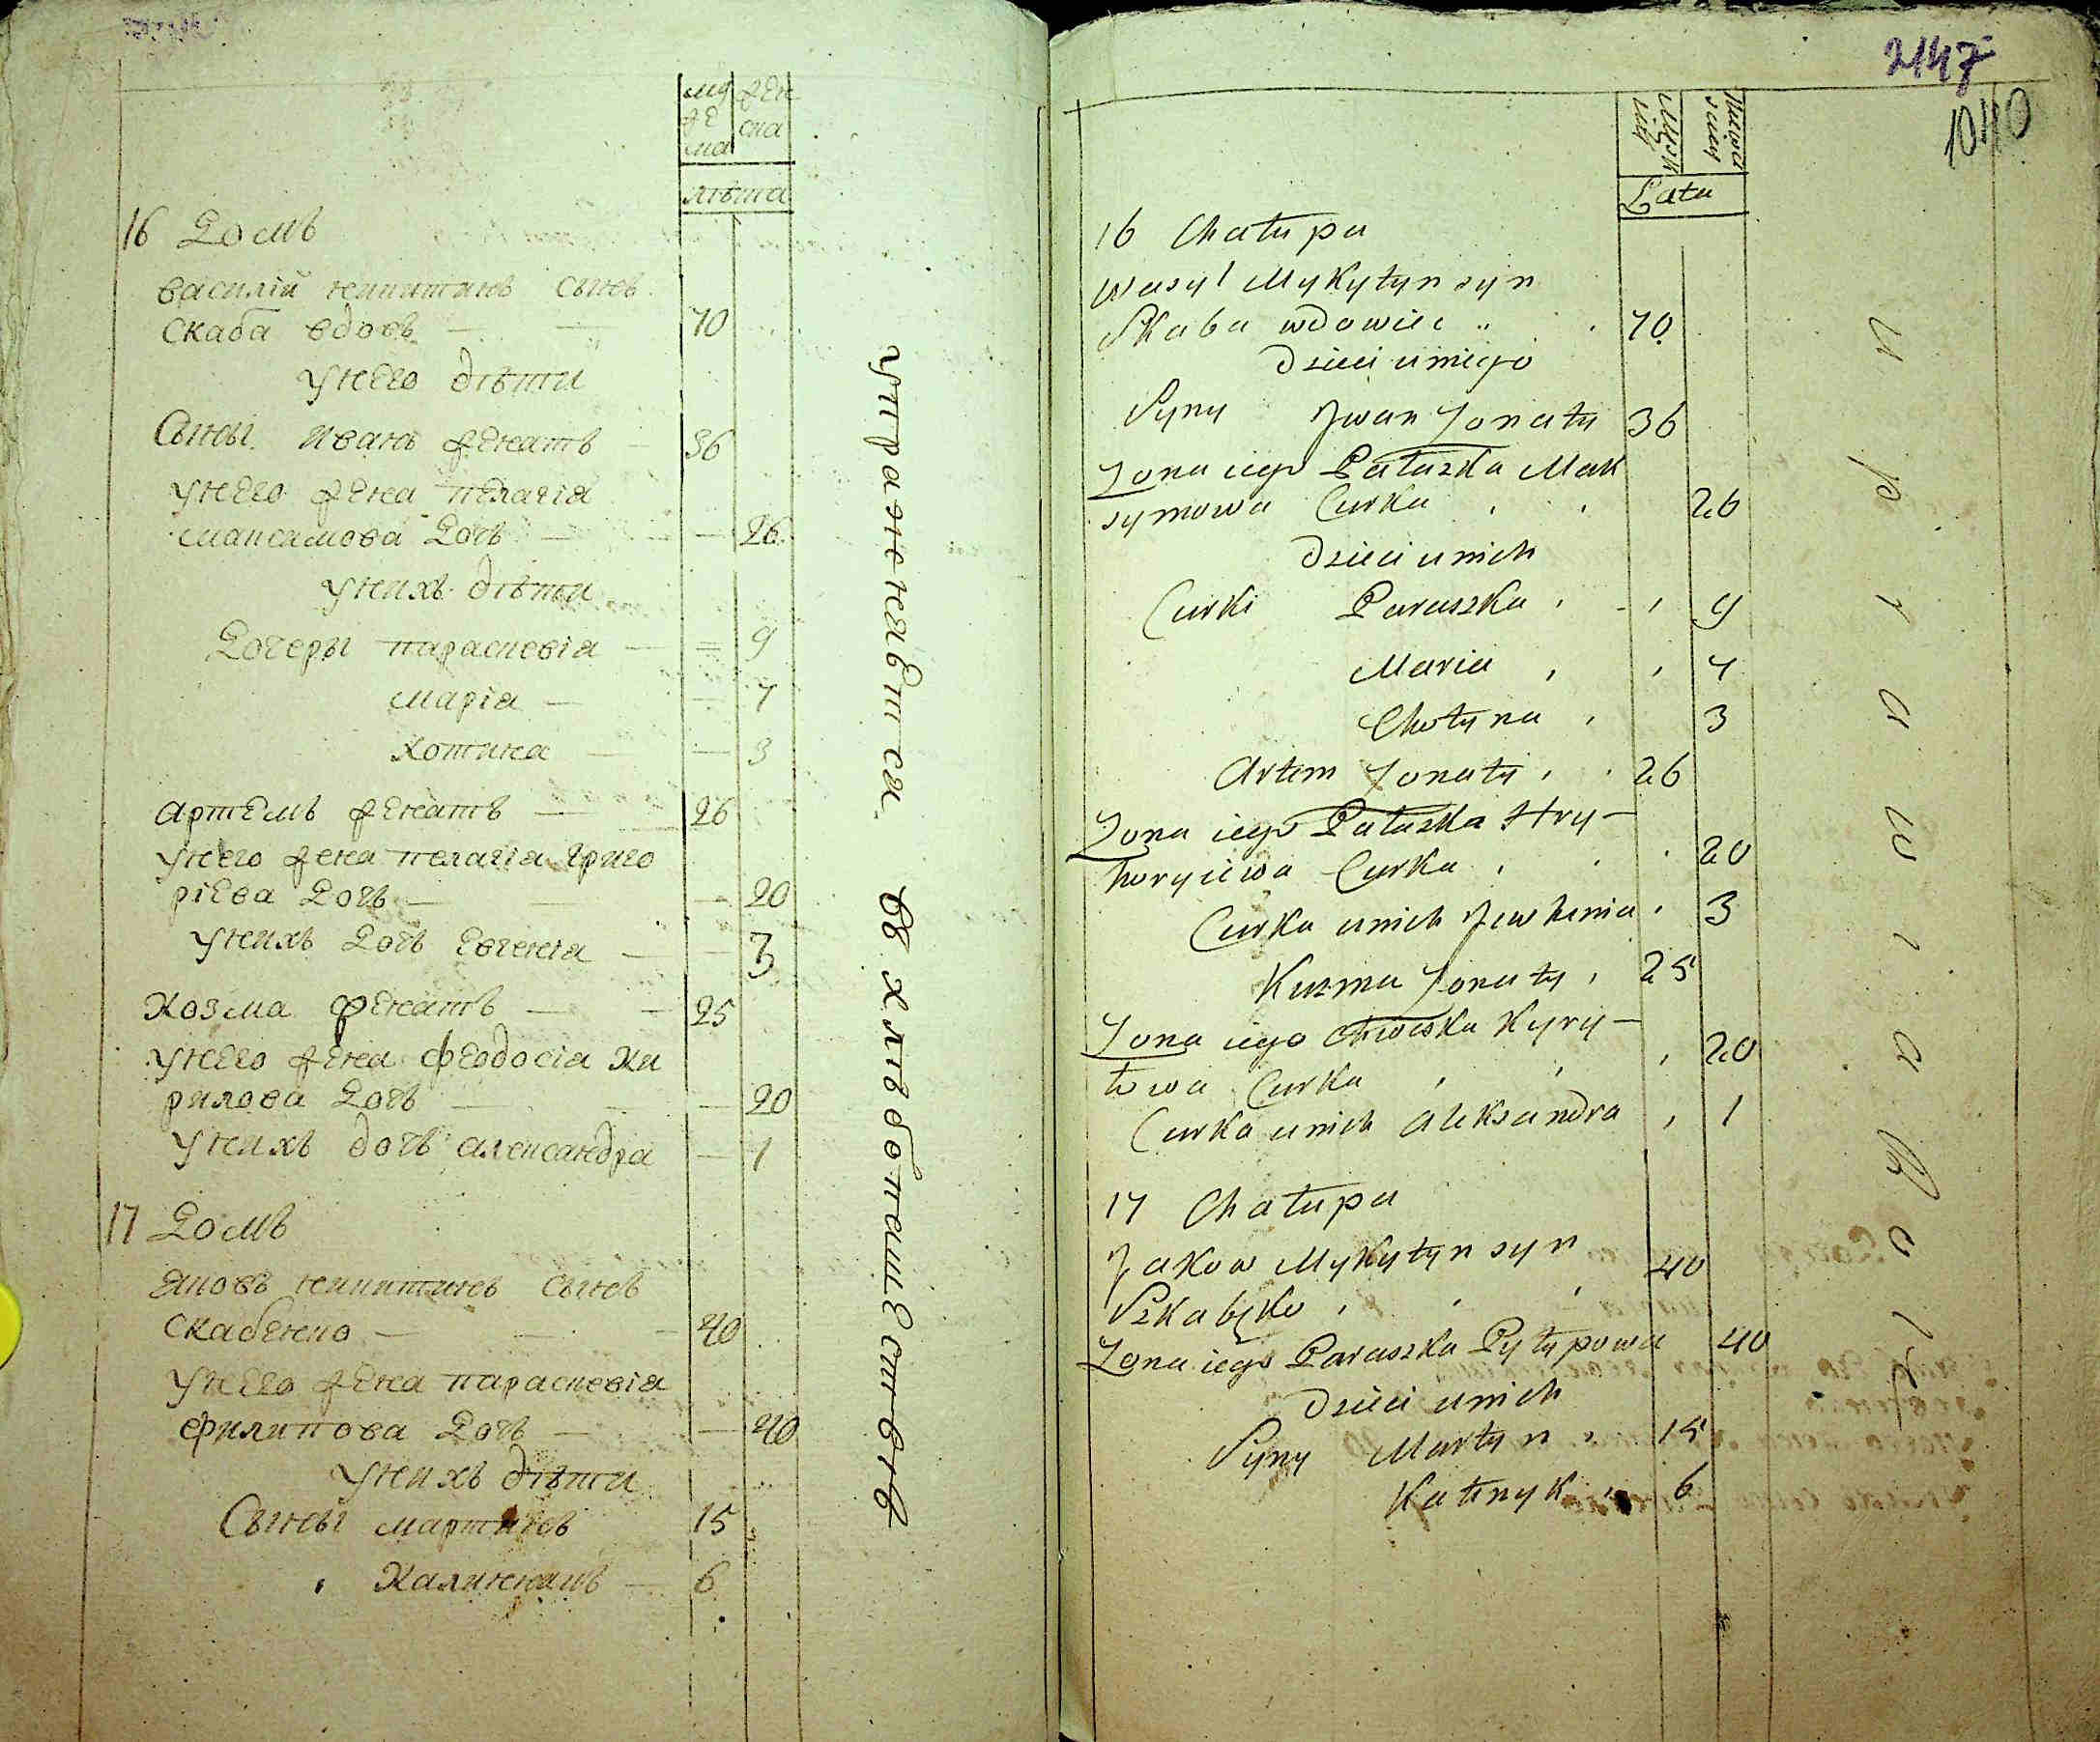 муже жен
ска
лѣта
16 Домъ
Василій никитинъ сынъ
Скаба вдовъ — 70
у него дѣти
Сыны Иванъ женатъ — 36
у него жена пелагія
максимова Дочь — 26
у нихъ дѣти
Дочеры параскевія — 9
марія — 7
хотина — 3
артемъ женатъ — 26
у него жена пелагія григо
ріева Дочь — 20
у нихъ Дочь евгенія — 3
Козма женатъ — 25
у него жена феодосія Ки
рилова Дочь — 20
у нихъ дочь александра — 1
17 Домъ
Яковъ никитинъ сынъ
Скабенко — 40
у него жена параскевія
филипова Дочь — 40
у нихъ дѣти
Сыны мартинъ 15
Калинникъ — 6
упражняется въ хлѣбопашествѣ
2147
1040
Lata
16 Chałupa
Wasyl Mykytyn syn
Skaba wdowiec 70
Dzieci u niego
Syny Jwan Żonaty 36
Żona iego Pałaszka Mak
symowa Curka 26
Dzieci u nich
Curki Paraszka 9
Maria 7
Chotyna 3
Artem Żonaty 26
Żona iego Pałaszka Hry—
horyiewa Curka 20
Curka u nich Jewhenia 3
Kuzma Żonaty 25
Żona iego Chweska Kyry—
łowa Curka 20
Curka u nich Aleksandra 1
17 Chałupa
Jakow Mykytyn syn 40
Szkabęko
Żona iego Paraszka Pyłypowa 40
Dzieci u nich
Syny Martyn 15
Kałenyk 6
uprawia Rolę